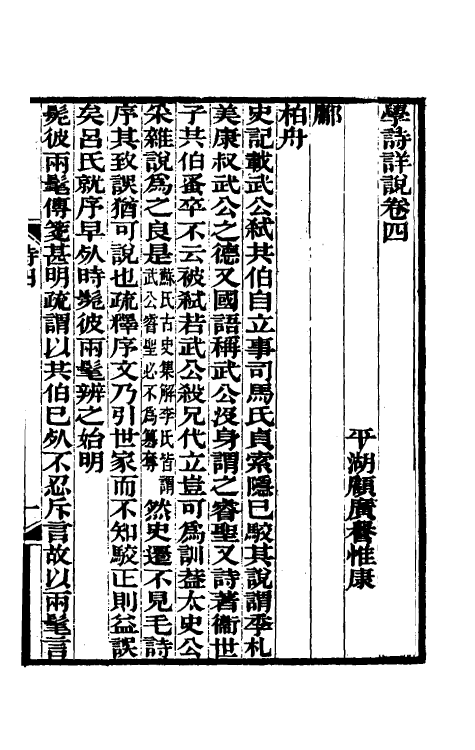 學詩詳說卷四
平湖顧廣譽惟康
鄘
柏舟
史記載武公弑共伯自立事司馬氏貞索隱已駮其說謂季札
美康叔武公之德又國語稱武公沒身謂之睿聖又詩著衞世
子共伯蚤卒不云被弑若武公殺兄代立豈可為訓葢太史公
采雜說為之良是蘇氏古史集解李氏皆謂武公睿聖必不為篡奪然史遷不見毛詩
序其致誤猶可說也疏釋序文乃引世家而不知駮正則益誤
矣呂氏就序早死時髧彼兩髦辨之始明
髧彼兩髦傳箋甚明疏謂以共伯已死不忍斥言故以兩髦言
詩四
一